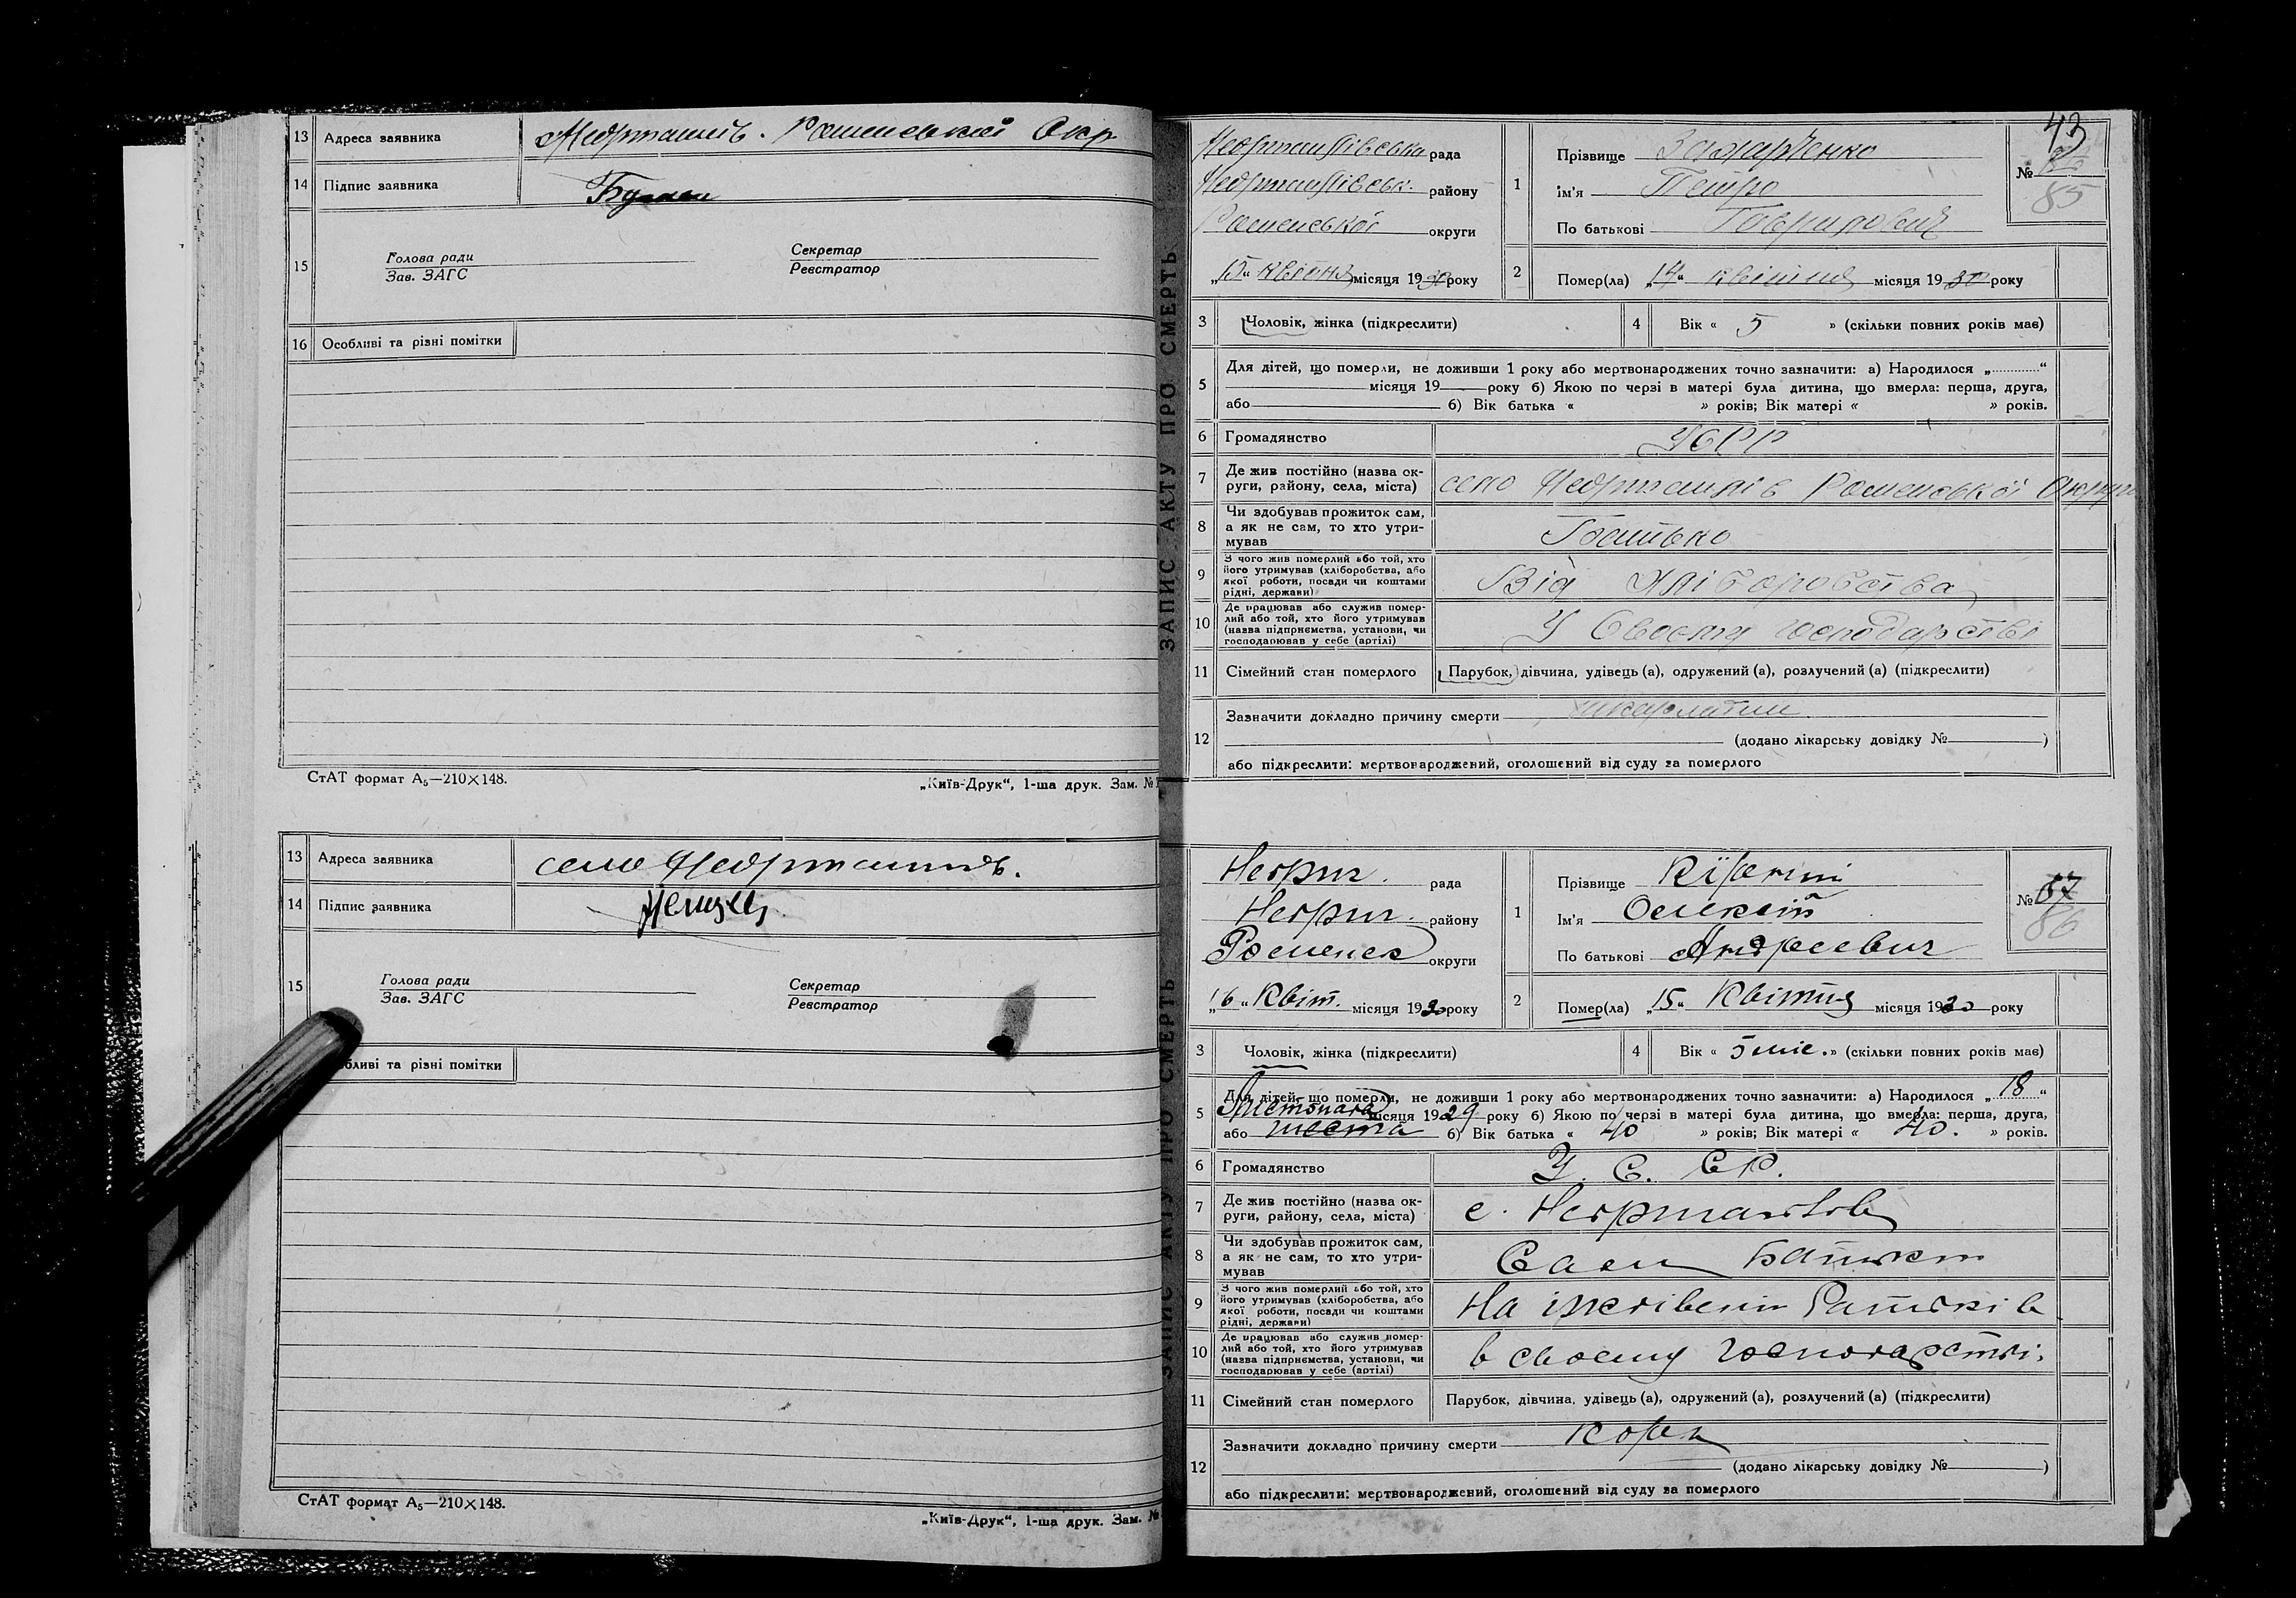 13 Адреса заявника Недригайлів. Роменської Окр
14 Підпис заявника
15 Голова ради
Зав. ЗАГС
Секретар
Реєстратор
16 Особливі та різні помітки
СтАТ формат А₅—210×148.
„Київ-Друк“, 1-ша друк. Зам. №
13 Адреса заявника село Недригайлів.
14 Підпис заявника
15 Голова ради
Зав. ЗАГС
Секретар
Реєстратор
бливі та різні помітки
СтАТ формат А₅—210×148.
„Київ-Друк“, 1-ша друк. Зам. №
ЗАПИС АКТУ ПРО СМЕРТЬ
43
Недригайлівська рада
Недригайлівськ. району
Роменської округи
„15“ квітня місяця 1930 року
1 Прізвище Захарченко
Ім'я Петро
По батькові Гаврилович
№
85
2 Помер(ла) „14“ квітня місяця 1930 року
3 Чоловік, жінка (підкреслити)
4 Вік « 5 » (скільки повних років має)
5 Для дітей, що померли, не доживши 1 року або мертвонароджених точно зазначити: а) Народилося „ “
місяця 19 року б) Якою по черзі в матері була дитина, що вмерла: перша, друга,
або б) Вік батька « » років; Вік матері « » років.
6 Громадянство УСРР
7 Де жив постійно (назва округи, району, села, міста) село Недригайлів Роменської Округи
8 Чи здобував прожиток сам,
а як не сам, то хто утри-
мував Батько
9 З чого жив померлий або той, хто
його утримував (хліборобства, або
якої роботи, посади чи коштами
рідні, держави) Від хліборобства
10 Де працював або служив помер-
лий або той, хто його утримував
(назва підприємства, установи, чи
господарював у себе (артілі) У Своєму господарстві
11 Сімейний стан померлого Парубок, дівчина, удівець (а), одружений (а), розлучений (а) (підкреслити)
12 Зазначити докладно причину смерти шкарлатин
(додано лікарську довідку № )
або підкреслити: мертвонароджений, оголошений від суду за померлого
ЗАПИС АКТУ ПРО СМЕРТЬ
Недриг. рада
Недриг. району
Роменск округи
„16“ Квіт. місяця 1930 року
1 Прізвище
Ім'я Олексій
По батькові Андреевич
№ 87
86
2 Помер(ла) „15“ Квітня місяця 1930 року
3 Чоловік, жінка (підкреслити)
4 Вік « 5 міс. » (скільки повних років має)
5 Для дітей, що померли, не доживши 1 року або мертвонароджених точно зазначити: а) Народилося „18“
Листопада місяця 1929 року б) Якою по черзі в матері була дитина, що вмерла: перша, друга,
або шеста б) Вік батька « 40 » років; Вік матері « 40. » років.
6 Громадянство У. С. С Р.
7 Де жив постійно (назва округи, району, села, міста) с. Недригайлов
8 Чи здобував прожиток сам,
а як не сам, то хто утри-
мував
9 З чого жив померлий або той, хто
його утримував (хліборобства, або
якої роботи, посади чи коштами
рідні, держави) На іждівенії Батьків
10 Де працював або служив помер-
лий або той, хто його утримував
(назва підприємства, установи, чи
господарював у себе (артілі) в своєму господарстві.
11 Сімейний стан померлого Парубок, дівчина, удівець (а), одружений (а), розлучений (а) (підкреслити)
12 Зазначити докладно причину смерти
(додано лікарську довідку № )
або підкреслити: мертвонароджений, оголошений від суду за померлого